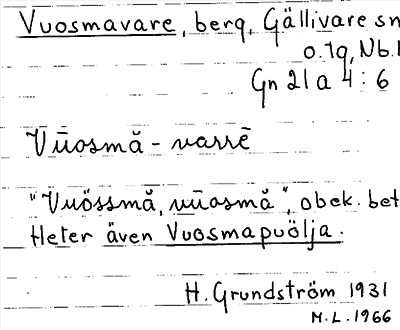 Vuosmavare, berg, Gällivare sn
o. lq, Nb.l
Gn 21 a 4 : 6
Vūosmă - varrē
"Vuössmă, vūosmă", obek. bet
Heter även Vuosmapuölja.
H. Grundström 1931
M.L. 1966